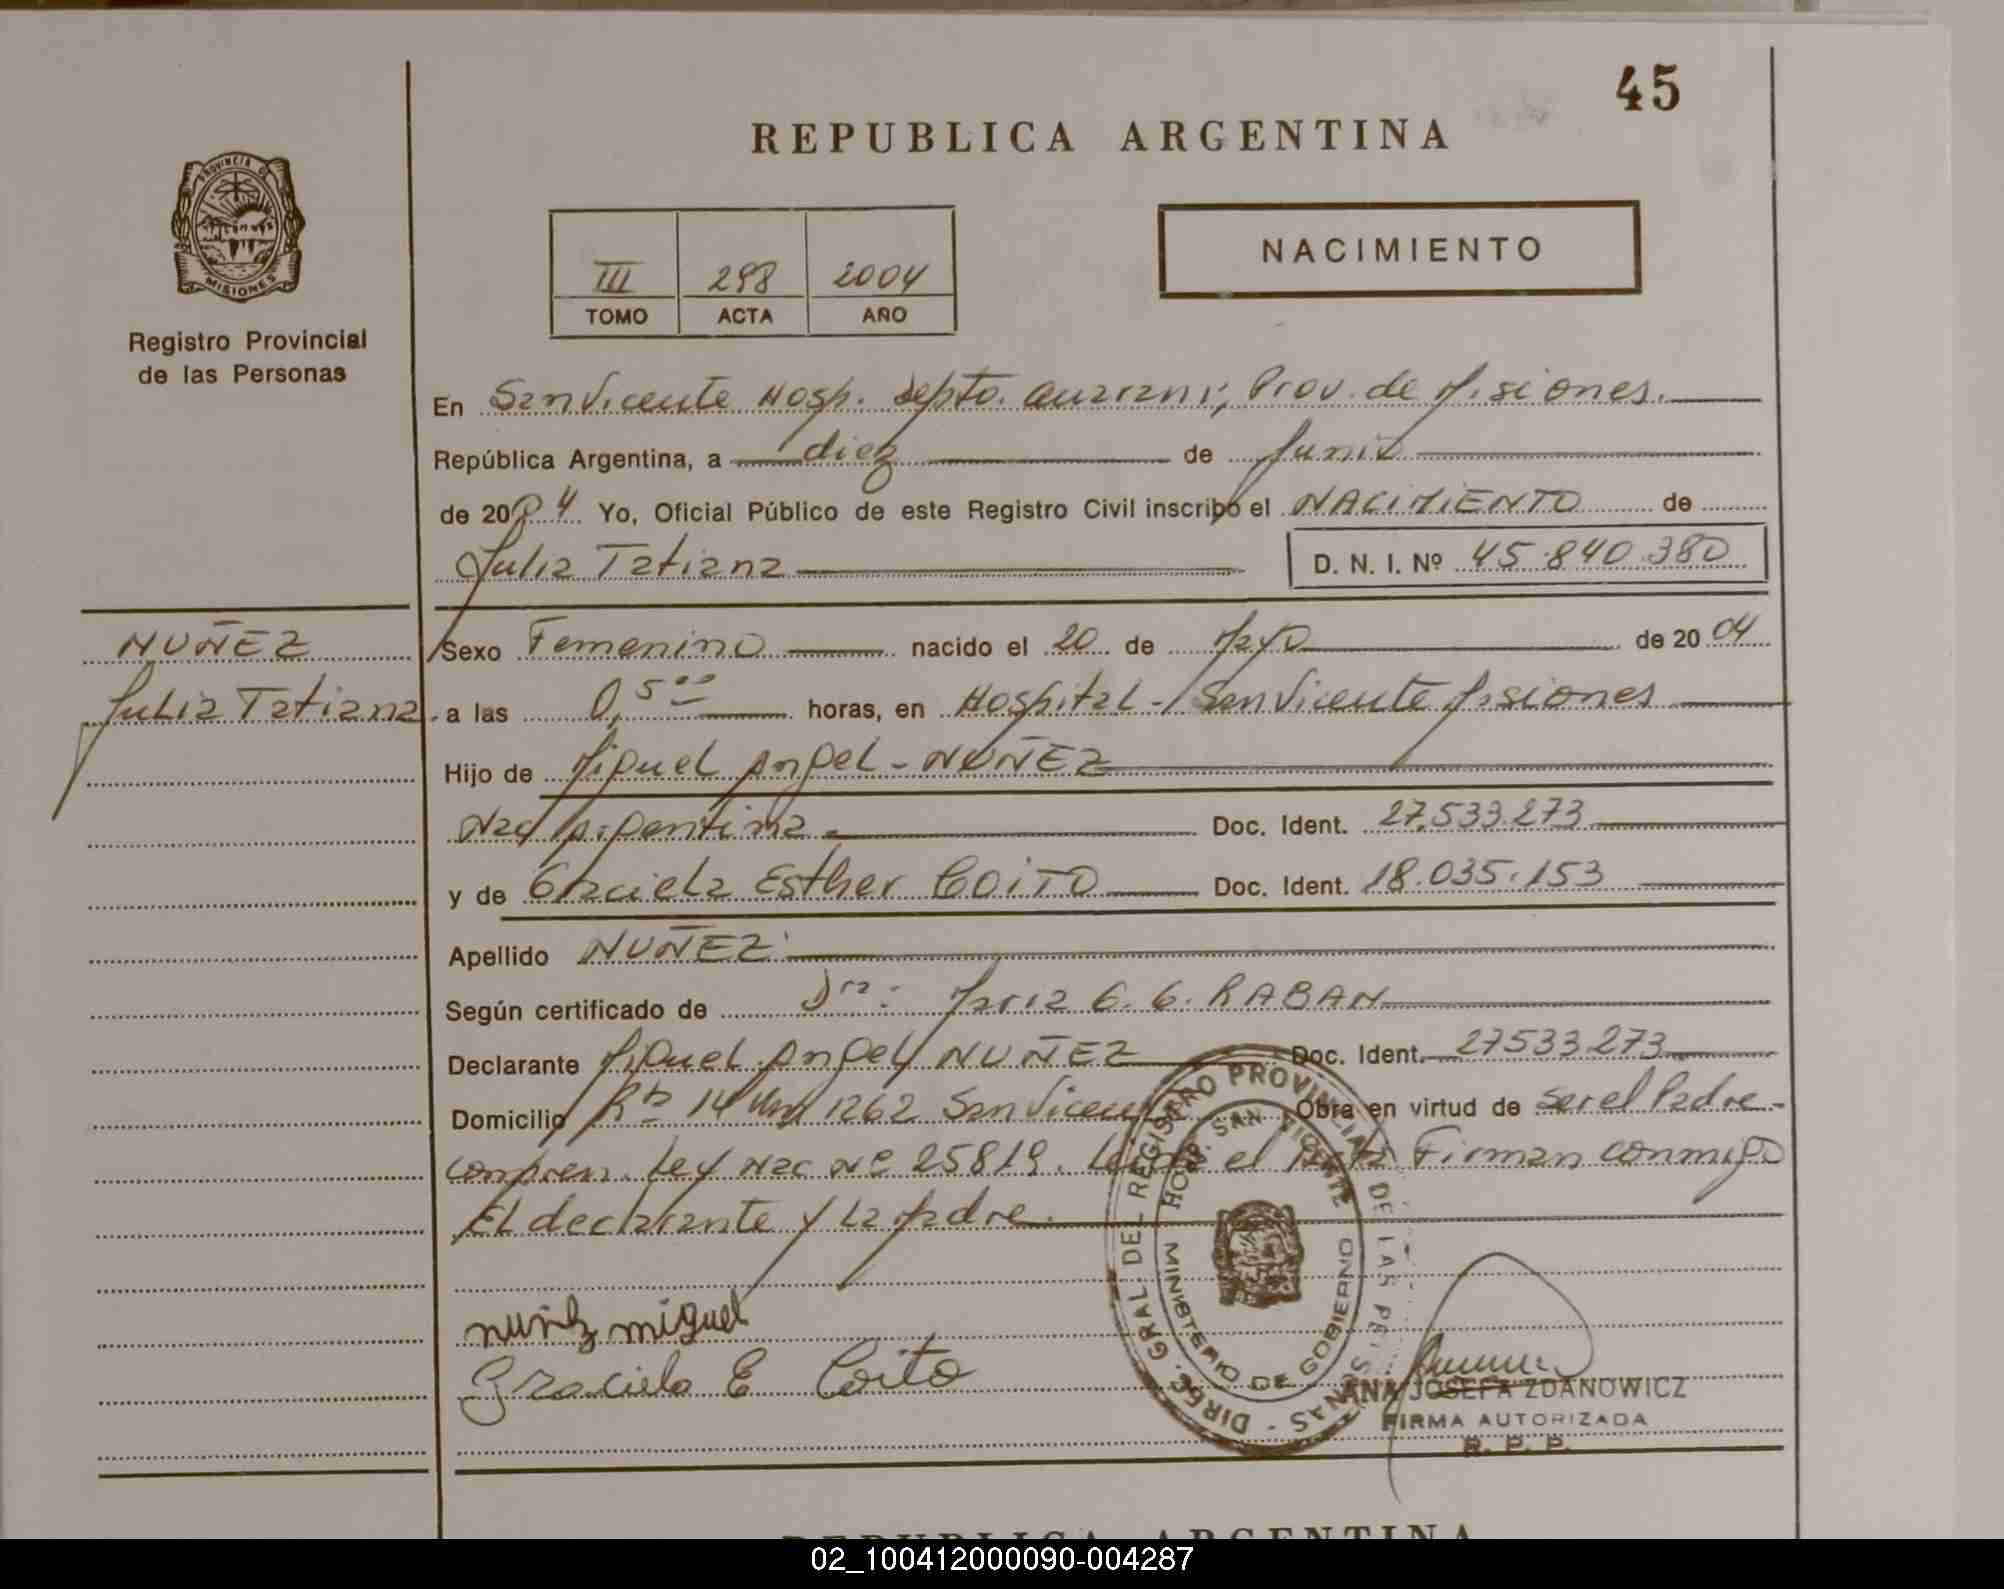 45
REPUBLICA ARGENTINA
PROVINCIA DE
MISIONES
Registro Provincial
de las Personas
III 298 2004
TOMO ACTA AÑO
NACIMIENTO
En San Vicente Hosp. Depto. Guarani, Prov. de Misiones.
República Argentina, a diez de Junio
de 2004 Yo, Oficial Público de este Registro Civil inscribo el NACIMIENTO de
Julia Tatiana D. N. I. Nº 45.840.380
NUÑEZ
Julia Tatiana
Sexo Femenino nacido el 20 de Mayo de 2004
a las 0,5 00 horas, en Hospital - San Vicente Misiones
Hijo de Miguel Angel - NUÑEZ
Nac Argentina. Doc. Ident. 27.533.273
y de Graciela Esther COITO Doc. Ident. 18.035.153
Apellido NUÑEZ
Según certificado de Dra: Maria G. G. RABAN
Declarante Miguel Angel NUÑEZ Doc. Ident. 27533273
Domicilio Rta 14 Km 1262 San Vicente Obra en virtud de ser el Padre -
Compren. Ley Nac Nº 25819. Leida el Acta Firman conmigo
El declarante y La Madre.
nuñez miguel
Graciela E Coito
DIREC. GRAL DEL REGISTRO PROVINCIAL DE LAS PERSONAS
HOSP. SAN VICENTE
MINISTERIO DE GOBIERNO
ANA JOSEFA ZDANOWICZ
FIRMA AUTORIZADA
R. P. P.
REPUBLICA ARGENTINA
02_100412000090-004287